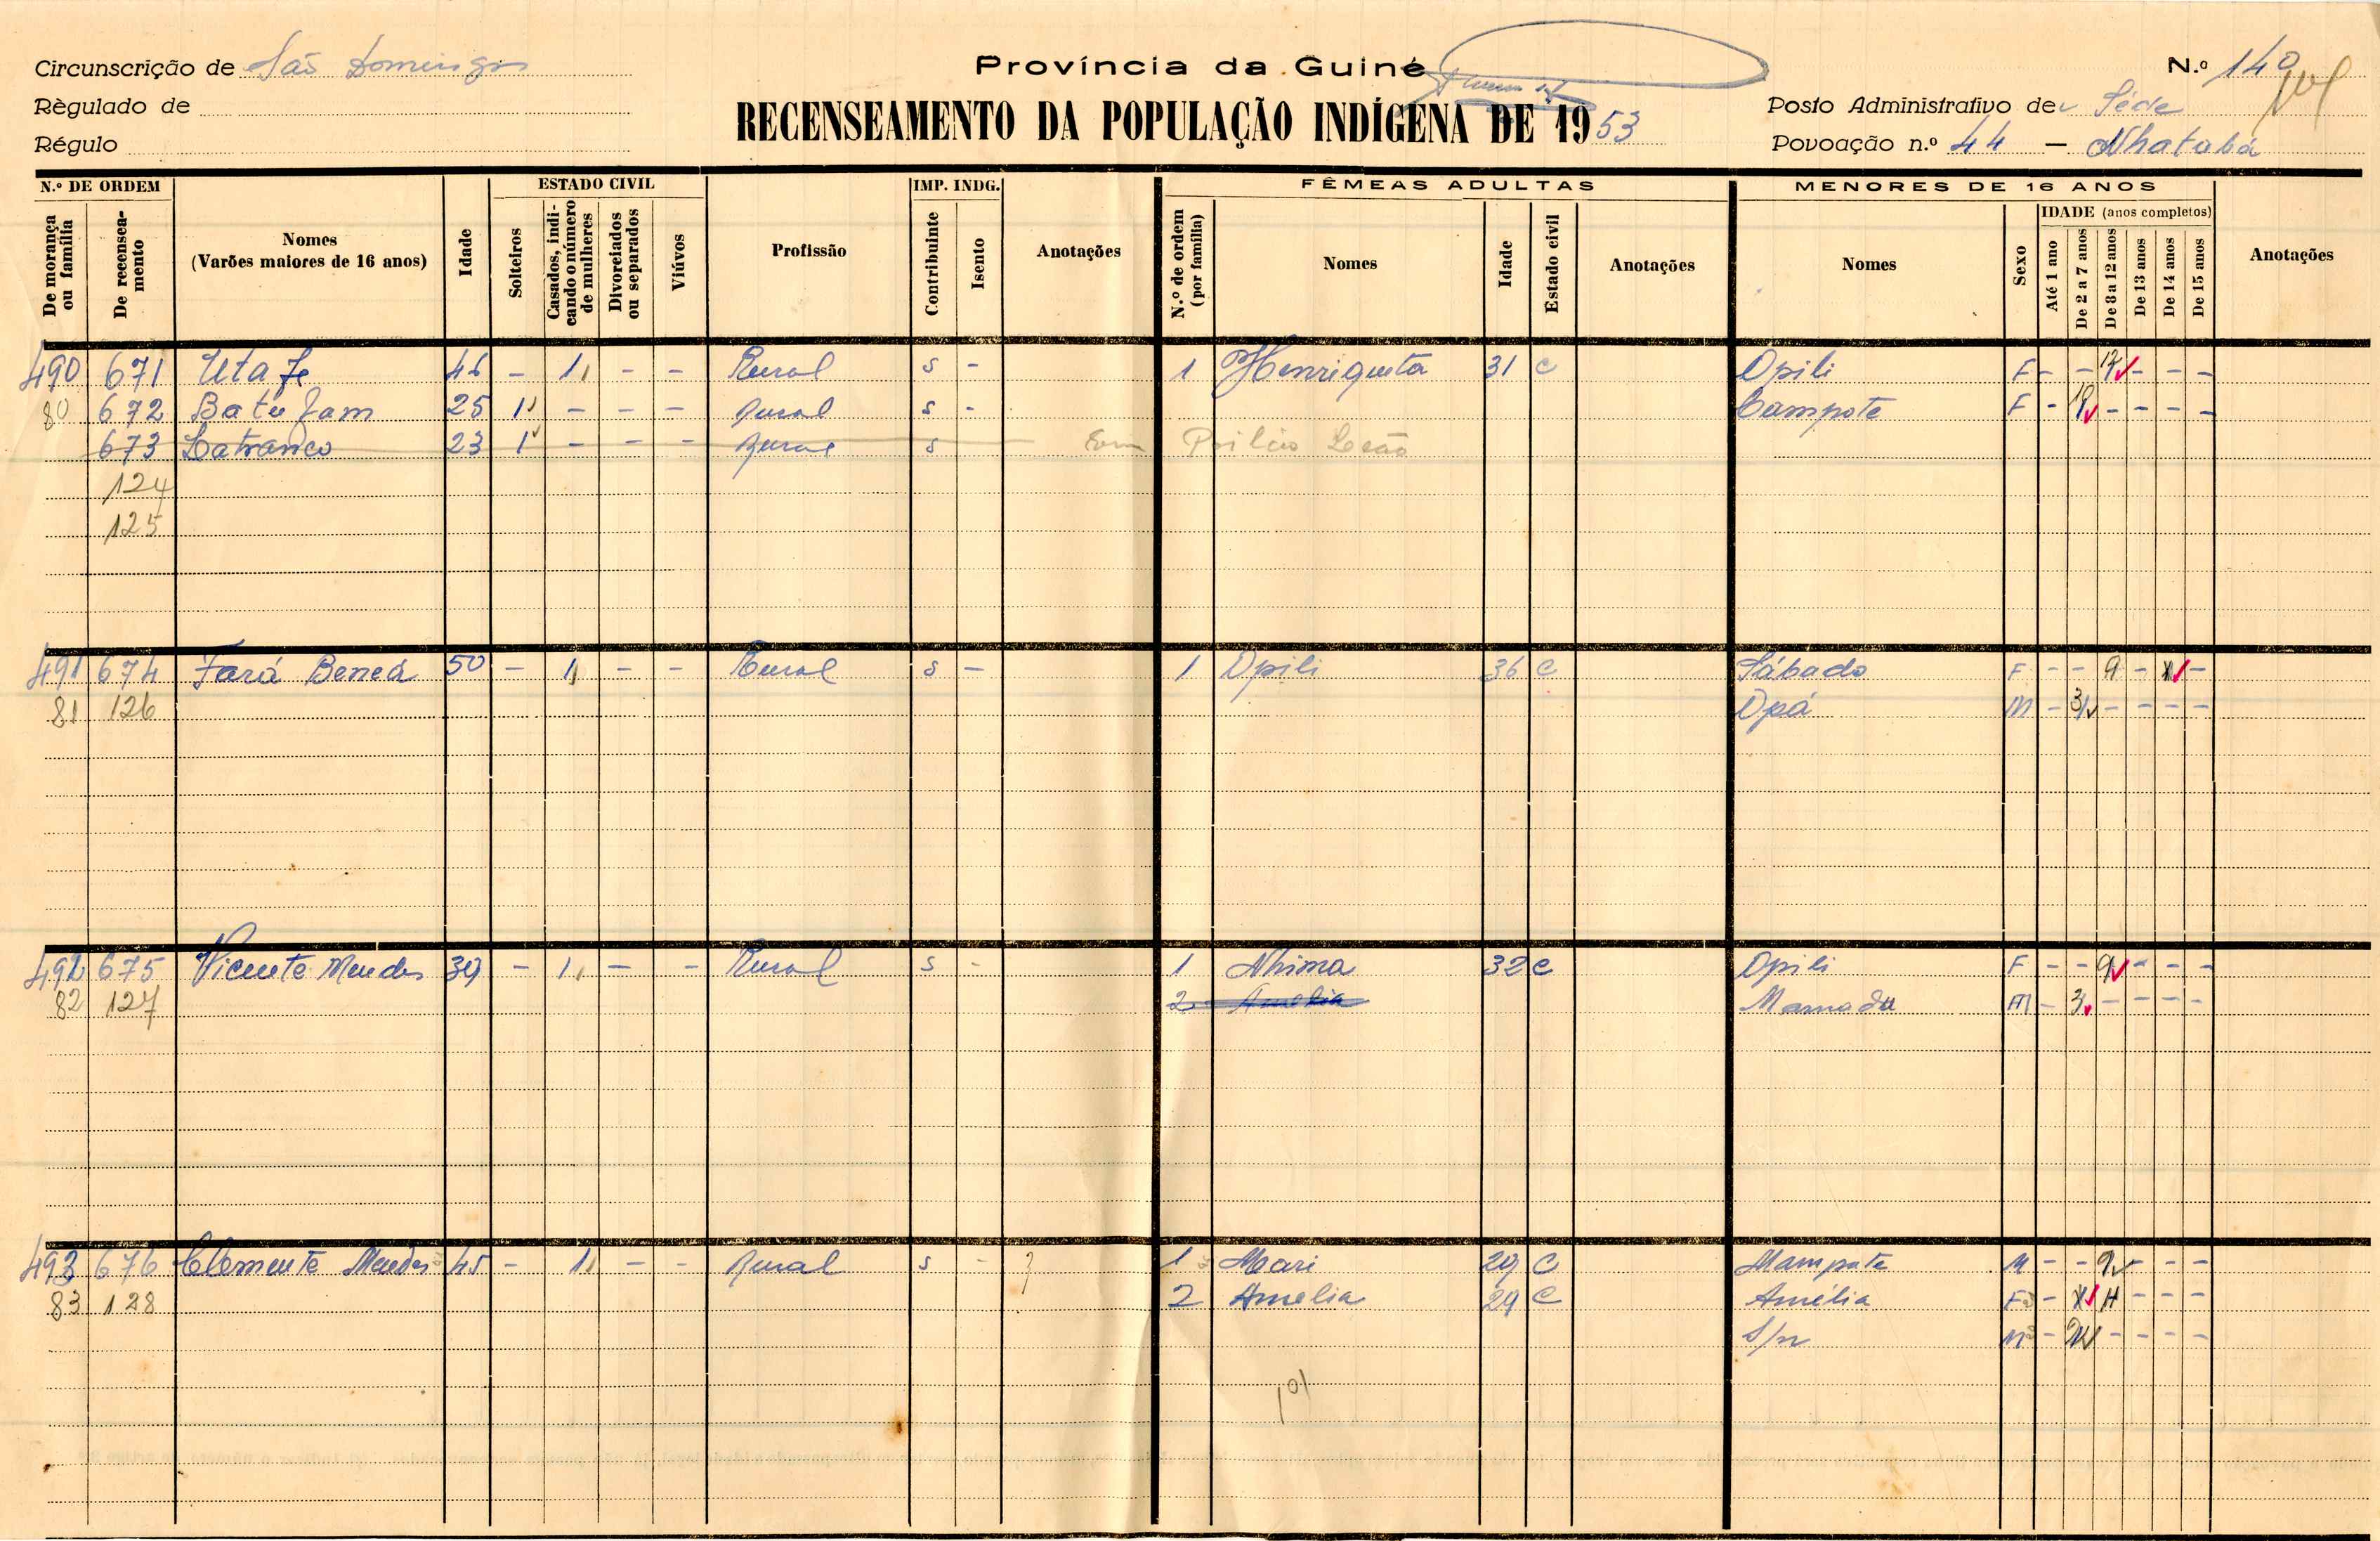 Circunscrição de São Domingos
Província da Guiné
N.º 140
Règulado de
RECENSEAMENTO DA POPULAÇÃO INDÍGENA DE 1953
Posto Administrativo de Séde
Régulo
Povoação n.º 44 — Nhatabá
N.º DE ORDEM ESTADO CIVIL IMP. INDG. FÊMEAS ADULTAS MENORES DE 16 ANOS
De morança ou família De recenseamento Nomes (Varões maiores de 16 anos) Idade Solteiros Casados, indicando o número de mulheres Divorciados ou separados Viúvos Profissão Contribuinte Isento Anotações N.º de ordem (por família) Nomes Idade Estado civil Anotações Nomes Sexo IDADE (anos completos) Até 1 ano De 2 a 7 anos De 8 a 12 anos De 13 anos De 14 anos De 15 anos Anotações
490 671 Uta Je 46 - 1 - - Rural s - 1 Henriqueta 31 C Opili F - - - - -
80 672 Batu Jam 25 1 - - - Rural s - Campote F - - - - -
673 Latranco 23 1 - - - Rural s
124
125
491 674 Fará Beneá 50 - 1 - - Rural s - 1 Opili 36 C Sábado F - - 9 - -
81 126 Opá M - 3 - - - -
492 675 Vicente Mendes 39 - 1 - - Rural s - 1 Nhima 32 C Opili F - - 9 - - -
82 127 2 Amelia Mamadu M - 3 - - - -
493 676 Clemente Mendes 45 - 1 - - Rural s - 1 Mari 29 C Mampate M - - 9 - - -
83 128 2 Amelia 29 C Amélia F - - - -
S/n M - - - - -
101